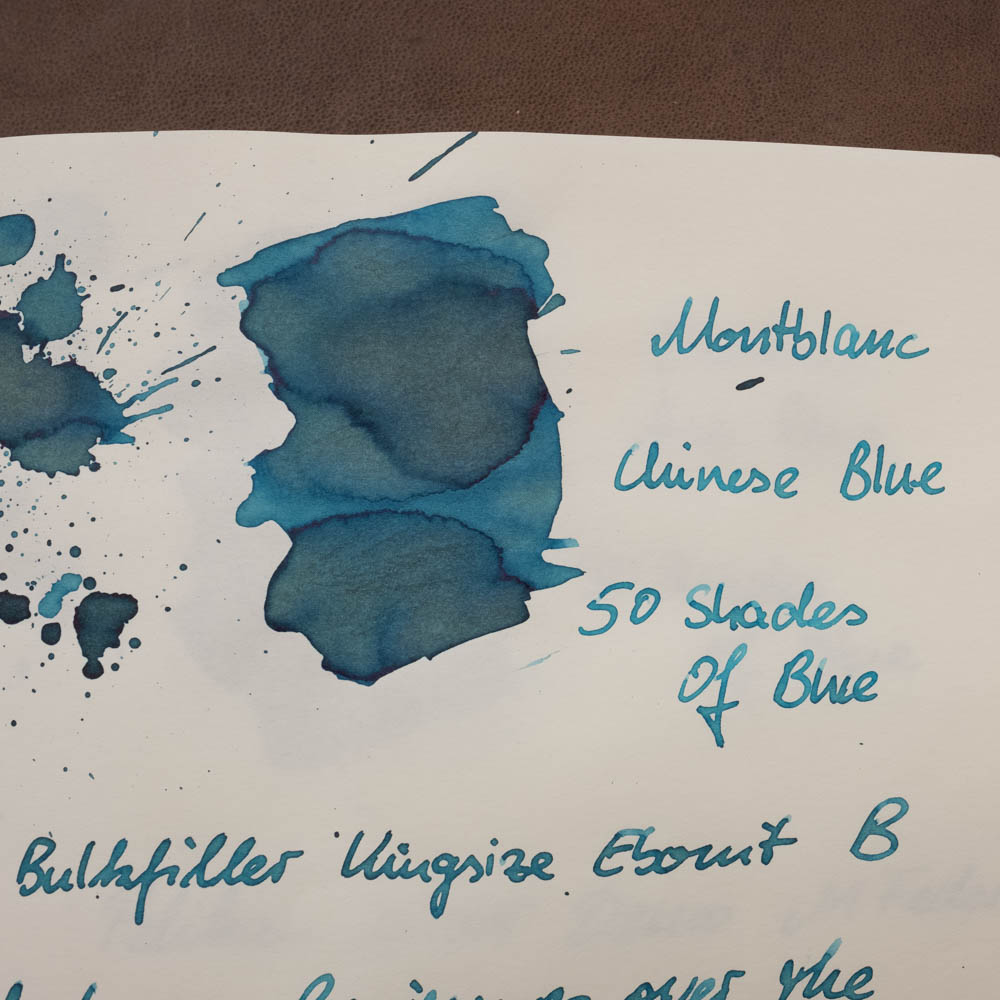 Montblanc
Chinese Blue
50 Shades
Of Blue
Bulkfiller Kingsize Ebonit B
over the